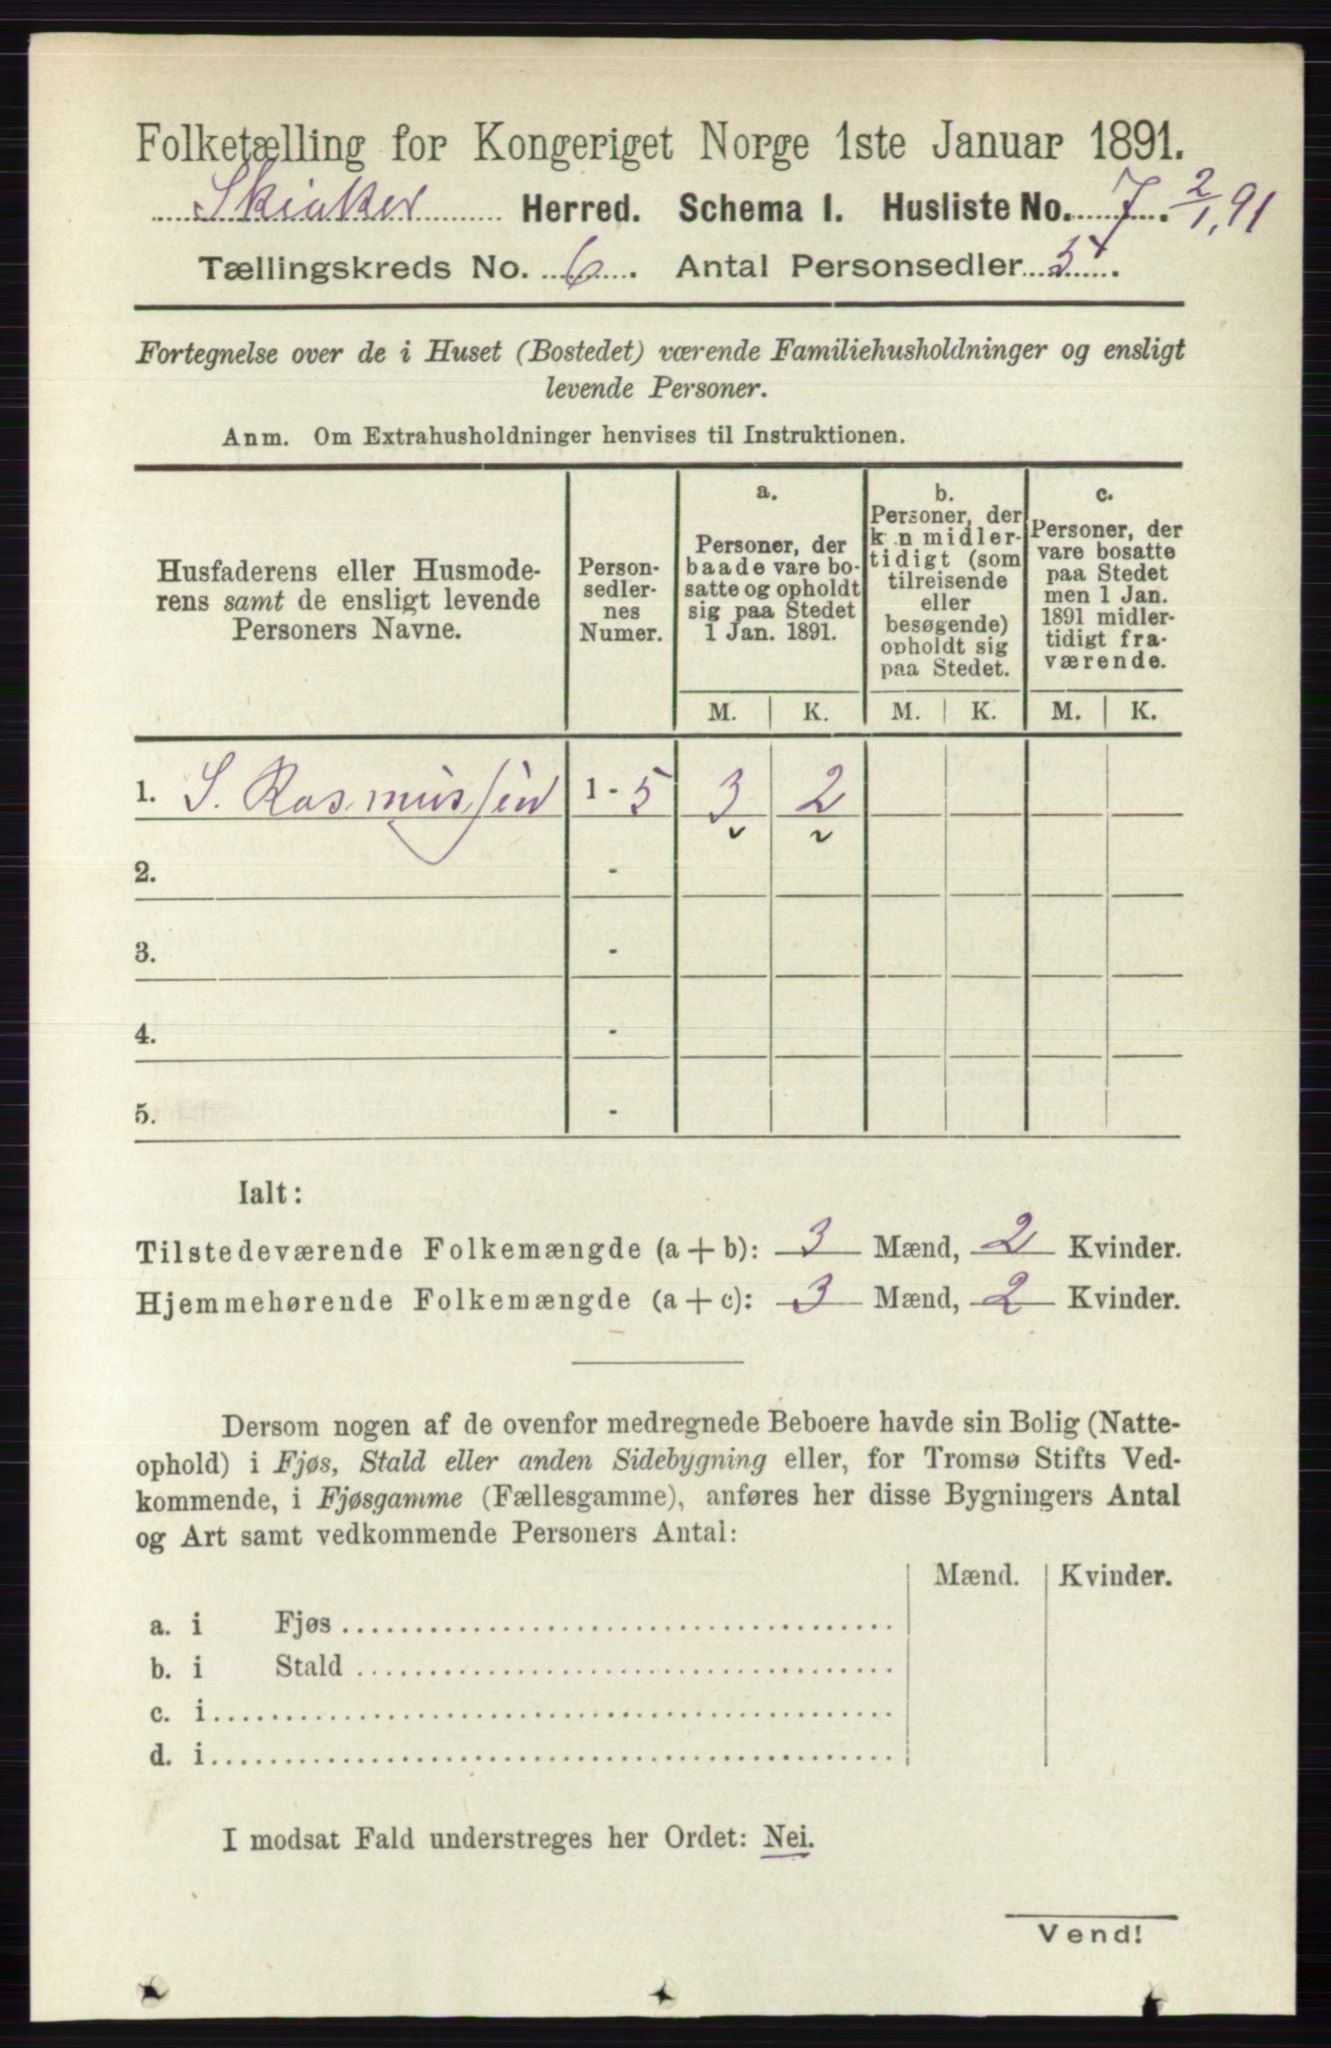 Folketælling for Kongeriget Norge 1ste Januar 1891.
Skiaker Herred. Schema I. Husliste No. 7. 2/1, 91
Tællingskreds No. 6. Antal Personsedler 5.
Fortegnelse over de i Huset (Bostedet) værende Familiehusholdninger og ensligt
levende Personer.
Anm. Om Extrahusholdninger henvises til Instruktionen.
Husfaderens eller Husmode-
rens samt de ensligt levende
Personers Navne.
Person-
sedler-
nes
Numer.
a.
Personer, der
baade vare bo-
satte og opholdt
sig paa Stedet
1 Jan. 1891.
b.
Personer, der
k n midler-
tidigt (som
tilreisende
eller
besøgende)
opholdt sig
paa Stedet.
c.
Personer, der
vare bosatte
paa Stedet
men 1 Jan.
1891 midler-
tidigt fra-
værende.
M. K. M. K. M. K.
1. S. Rasmussen 1 - 5 3 2
2. -
3. -
4. -
5. -
Ialt:
Tilstedeværende Folkemængde (a + b): 3 Mænd, 2 Kvinder.
Hjemmehørende Folkemængde (a + c): 3 Mænd, 2 Kvinder.
Dersom nogen af de ovenfor medregnede Beboere havde sin Bolig (Natte-
ophold) i Fjøs, Stald eller anden Sidebygning eller, for Tromsø Stifts Ved-
kommende, i Fjøsgamme (Fællesgamme), anføres her disse Bygningers Antal
og Art samt vedkommende Personers Antal:
Mænd. Kvinder.
a. i Fjøs
b. i Stald
c. i
d. i
I modsat Fald understreges her Ordet: Nei.
Vend!